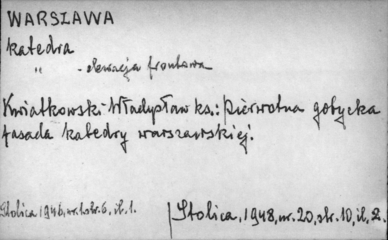 WARSZAWA
katedra
" - elewacja frontowa
Kwiatkowski Władysław ks.: Pierwotna gotycka
fasada katedry warszawskiej.
Stolica, 1946, nr. 1. str. 6, il. 1.
Stolica, 1948, nr. 20, str. 10, il. 2.